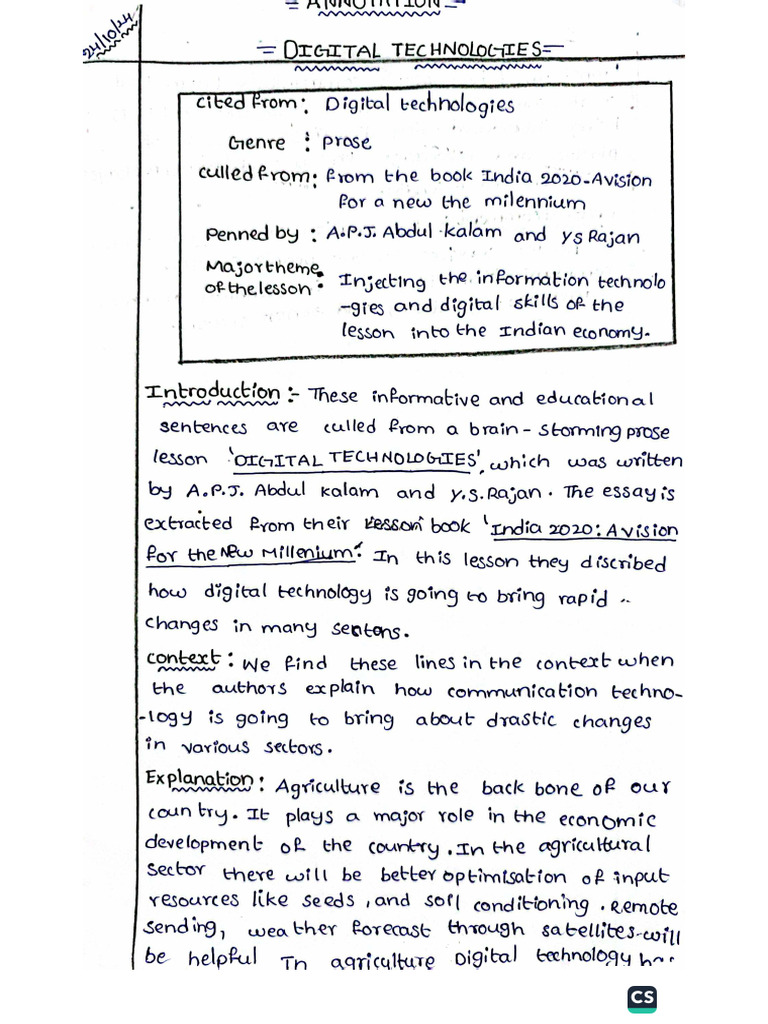 = ANNOTATION =
24/10/24
= DIGITAL TECHNOLOGIES =
Cited from : Digital technologies
Genre : prose
culled from : from the book India 2020-A vision
for a new the milennium
penned by : A.P.J. Abdul kalam and YS Rajan
Major theme
of the lesson : Injecting the information technolo
-gies and digital skills of the
lesson into the Indian economy.
Introduction :- These informative and educational
sentences are culled from a brain-storming prose
lesson 'DIGITAL TECHNOLOGIES', which was written
by A.P.J. Abdul kalam and Y.S. Rajan. The essay is
extracted from their Lesson book 'India 2020: A vision
for the New Millenium'. In this lesson they discribed
how digital technology is going to bring rapid ..
changes in many
context : We find these lines in the context when
the authors explain how communication techno-
-logy is going to bring about drastic changes
in various sectors.
Explanation : Agriculture is the back bone of our
country. It plays a major role in the economic
development of the country. In the agricultural
sector there will be better optimisation of input
resources like seeds, and soil conditioning. Remote
sending, weather forecast through satellites will
be helpful In agriculture Digital technology has
CS